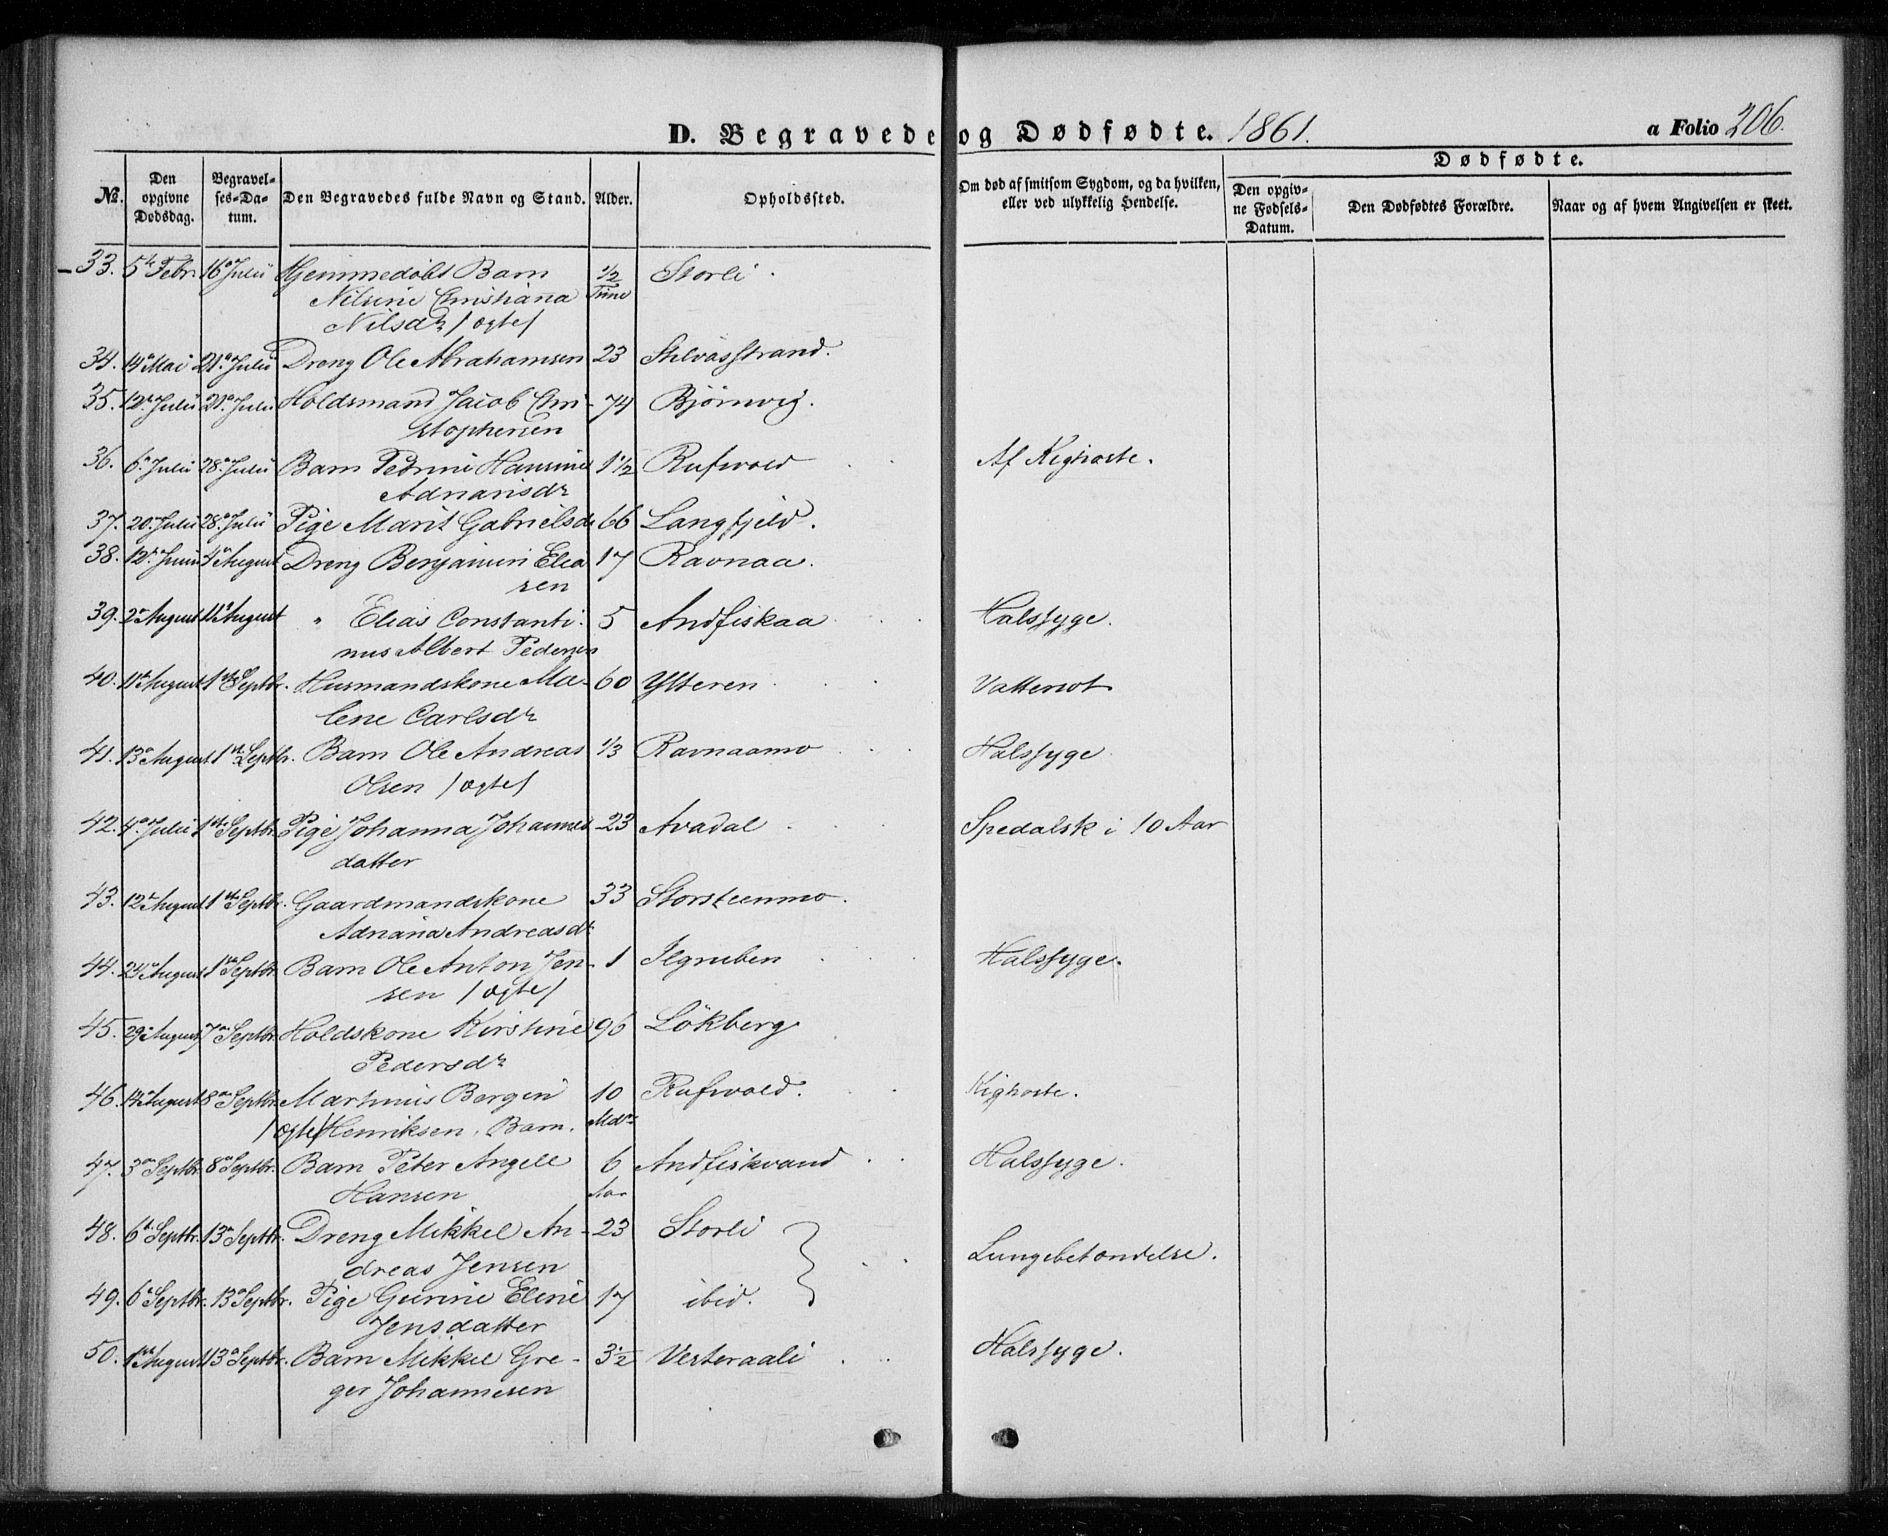 D. Begravede og Dødfødte. 1861. a Folio 206.
Dødfødte.
No. Den opgivne Dødsdag. Begravelses-Datum. Den Begravedes fulde Navn og Stand. Alder. Opholdssted. Om død af smitsom Sygdom, og da hvilken, eller ved ulykkelig Hendelse. Den opgivne Fødsels-Datum. Den Dødfødtes Forældre. Naar og af hvem Angivelsen er skeet.
33. 5te Febr. 16de Julii Hjemmedøbt Barn ½ Time Storli.
Nilsine Christianna
Nilsdr /ægte/
34. 14de Mai 21de Julii Dreng Ole Abrahamsen 23 Stilvasstrand.
35. 12te Julii 21de Julii Holdsmand Jacob Chri- 74 Bjørnvig.
stophersen
36. 6te Julii 28de Julii Barn Petrine Hansine 1½ Rufsvold Af Kighoste.
Adriansdr
37. 20. Julii 28de Julii Pige Marit Gabrielsdr 66 Langfjeld.
38. 12te Junii 4de August Dreng Benjamin Elia 17 Ravnaa.
sen
39. 2den August 11te August " Elias Constanti- 5 Andfiskaa Halssyge.
nus Albert Pedersen
40. 11te August 1ste Septbr. Husmandskone Ma- 60 Ytteren Vattersot
lene Carlsdr
41. 13de August 1ste Septbr. Barn Ole Andreas 1/3 Ravnaamo Halssyge
Olsen /ægte/
42. 4de Julii 1ste Septbr. Pige Johanna Johannes 23 Avadal Spedalsk i 10 Aar
datter
43. 12te August 1ste Septbr. Gaardmandskone 33 Storsteenmo.
Adriana Andreasdr
44. 24de August 1ste Septbr. Barn Ole Anton Jen- 1 Ilgruben Halssyge.
sen /ægte/
45. 29de August 7de Septbr. Holdskone Kirstine 96 Lökberg
Pedersdr
46. 14de August 8de Septbr. Martinus Bergin 10 Mdr Rufsvold. Kighoste.
/ægte/ Henriksen, Barn.
47. 3die Septbr. 8de Septbr. Barn Peter Angell 6 Aar Andfiskvand Halssyge.
Hansen
48. 6te Septbr. 13de Septbr. Dreng Mikkel An- 23 Storli
dreas Jensen
Lungebetændelse.
49. 6te Septbr. 13de Septbr. Pige Gurine Eline 17 ibid.
Jensdatter
50. 1ste August 13de Septbr. Barn Mikkel Gre- 3½ Vesteraali Halssyge.
ger Johannesen